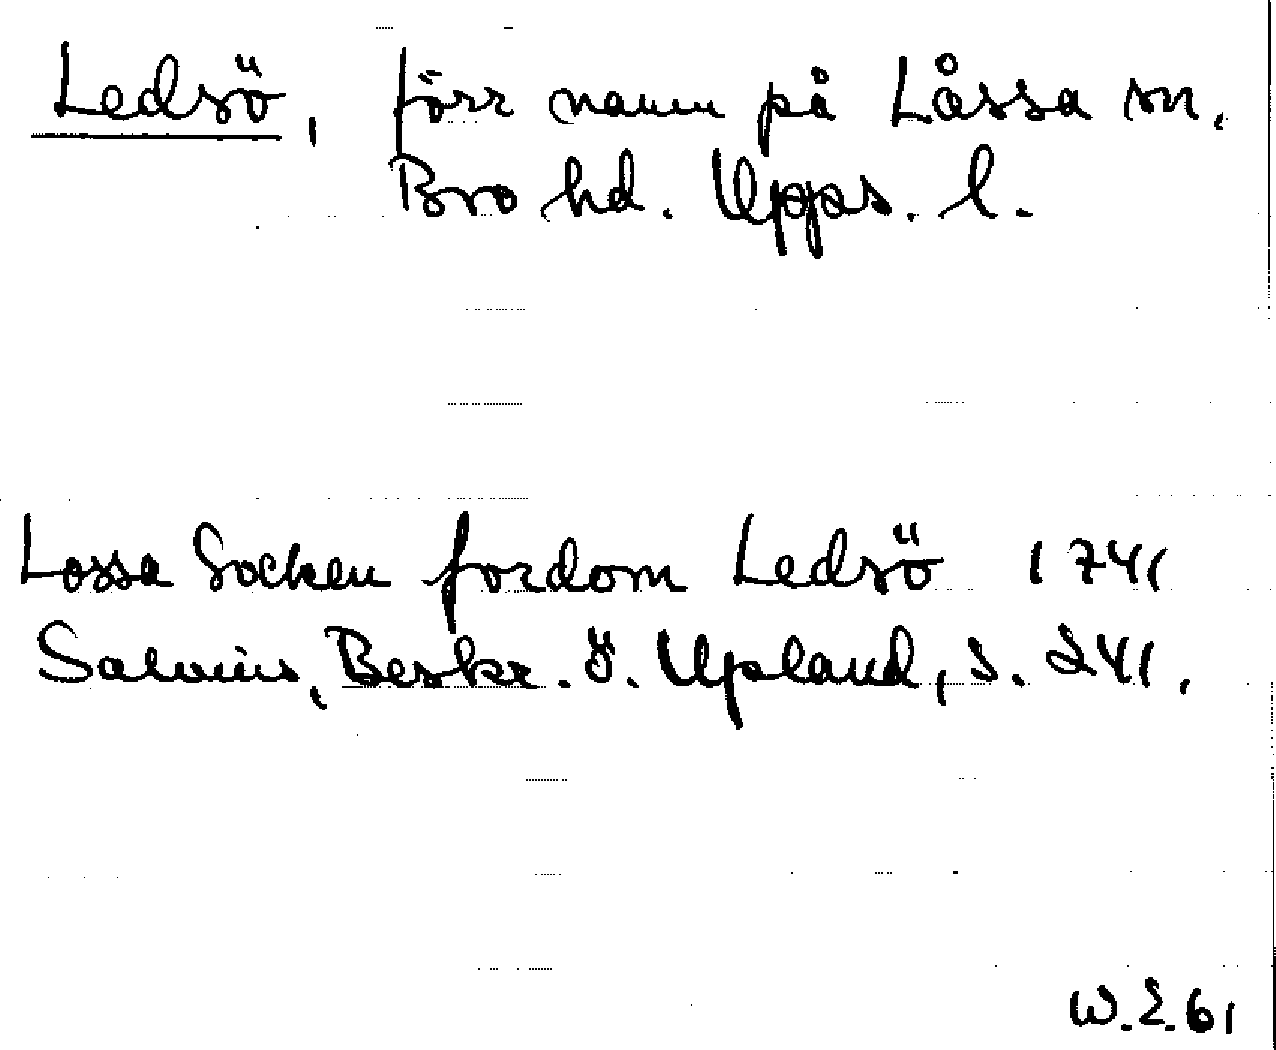 Ledsö, förr namn på Låssa sn.
Bro hd. Upps. l.
Lossa Socken fordom Ledsö 1741
Salvius, Beskr. ö. Upland, s. 241.
W.E.61